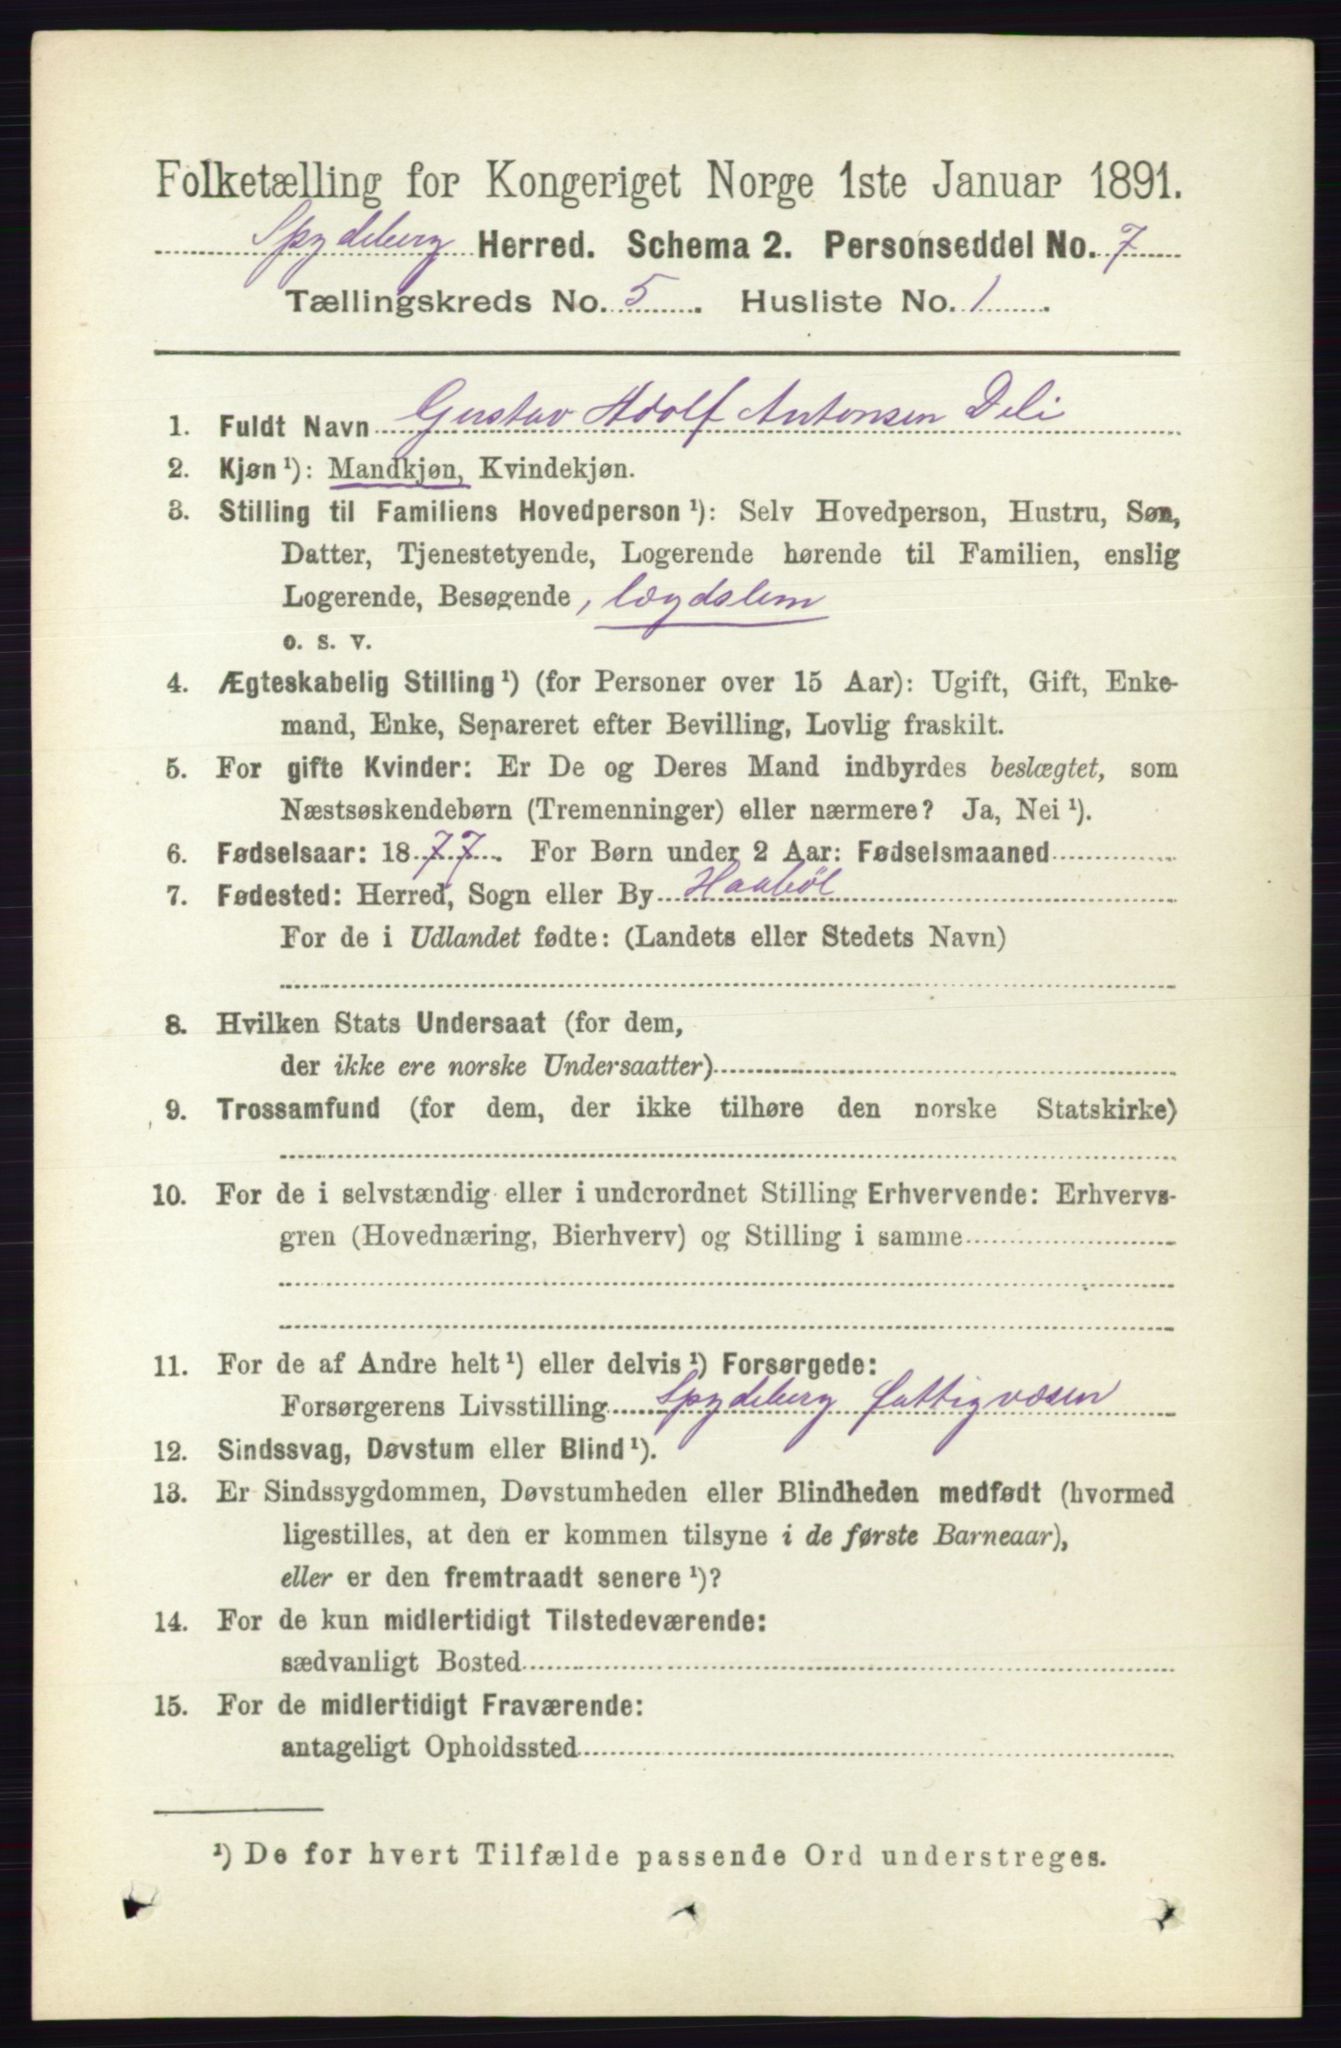 Folketælling for Kongeriget Norge 1ste Januar 1891.
Spydeberg Herred. Schema 2. Personseddel No. 7
Tællingskreds No. 5. Husliste No. 1.
1. Fuldt Navn Gustav Adolf Antonsen Deli
2. Kjøn ¹): Mandkjøn, Kvindekjøn.
3. Stilling til Familiens Hovedperson ¹): Selv Hovedperson, Hustru, Søn,
Datter, Tjenestetyende, Logerende hørende til Familien, enslig
Logerende, Besøgende, lægdslem
o. s. v.
4. Ægteskabelig Stilling ¹) (for Personer over 15 Aar): Ugift, Gift, Enke-
mand, Enke, Separeret efter Bevilling, Lovlig fraskilt.
5. For gifte Kvinder: Er De og Deres Mand indbyrdes beslægtet, som
Næstsøskendebørn (Tremenninger) eller nærmere? Ja, Nei ¹).
6. Fødselsaar: 1877. For Børn under 2 Aar: Fødselsmaaned
7. Fødested: Herred, Sogn eller By Haabøl
For de i Udlandet fødte: (Landets eller Stedets Navn)
8. Hvilken Stats Undersaat (for dem,
der ikke ere norske Undersaatter)
9. Trossamfund (for dem, der ikke tilhøre den norske Statskirke)
10. For de i selvstændig eller i underordnet Stilling Erhvervende: Erhvervs-
gren (Hovednæring, Bierhverv) og Stilling i samme
11. For de af Andre helt ¹) eller delvis ¹) Forsørgede:
Forsørgerens Livsstilling Spydeberg Fattigvæsen
12. Sindssvag, Døvstum eller Blind ¹).
13. Er Sindssygdommen, Døvstumheden eller Blindheden medfødt (hvormed
ligestilles, at den er kommen tilsyne i de første Barneaar),
eller er den fremtraadt senere ¹)?
14. For de kun midlertidigt Tilstedeværende:
sædvanligt Bosted
15. For de midlertidigt Fraværende:
antageligt Opholdssted
¹) De for hvert Tilfælde passende Ord understreges.